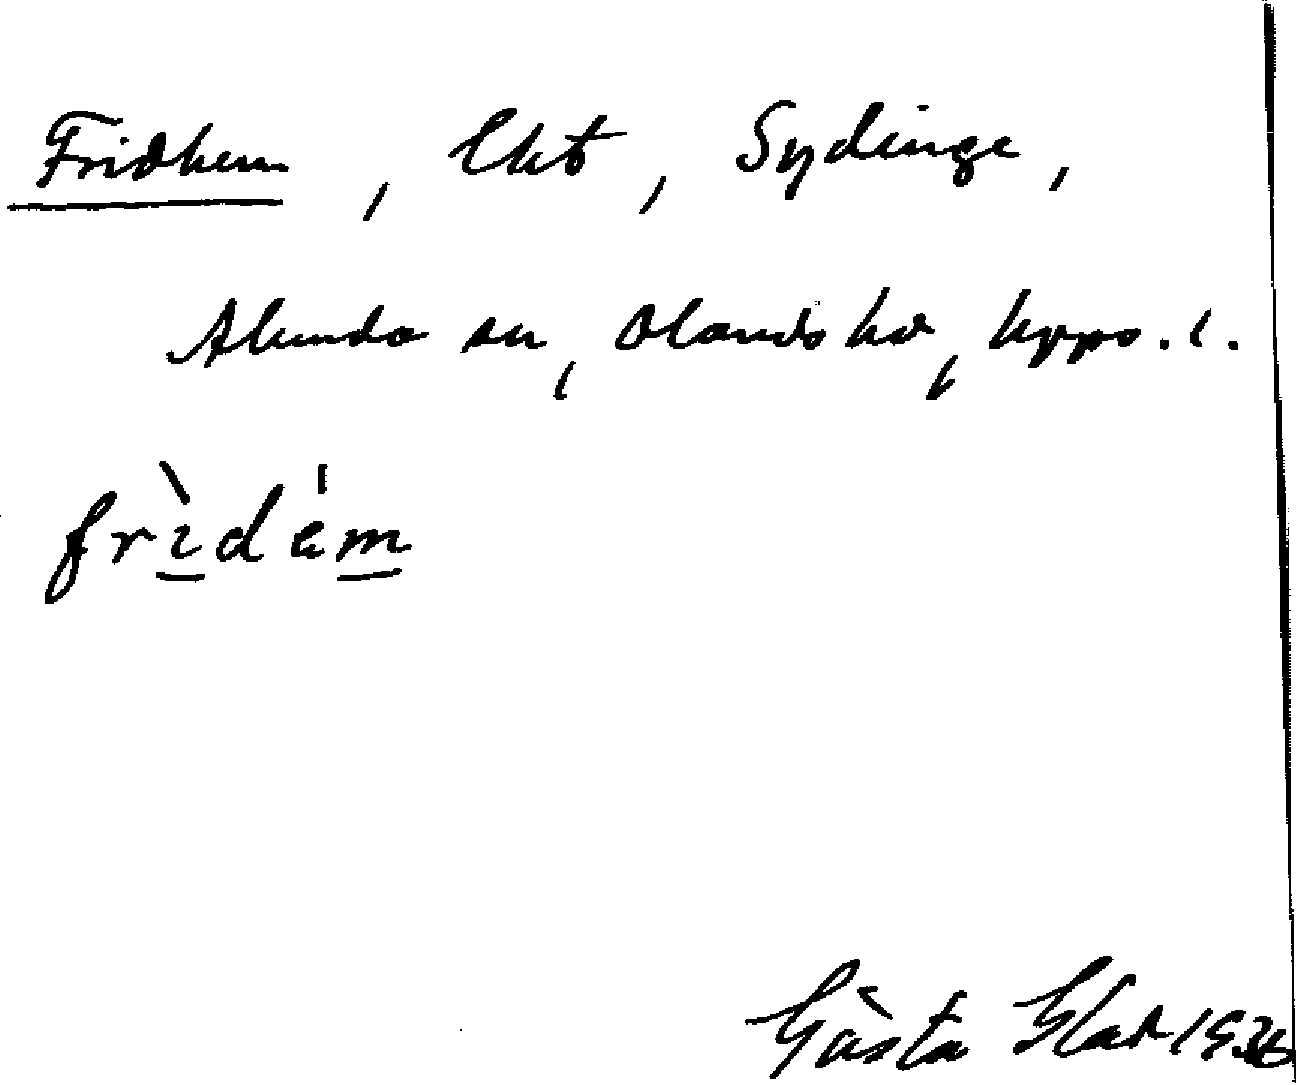 Fridhem, lht, Sydinge,
Alunda sn, Olands hd, Upps. l.
frìdém
Gösta Hlad 1936